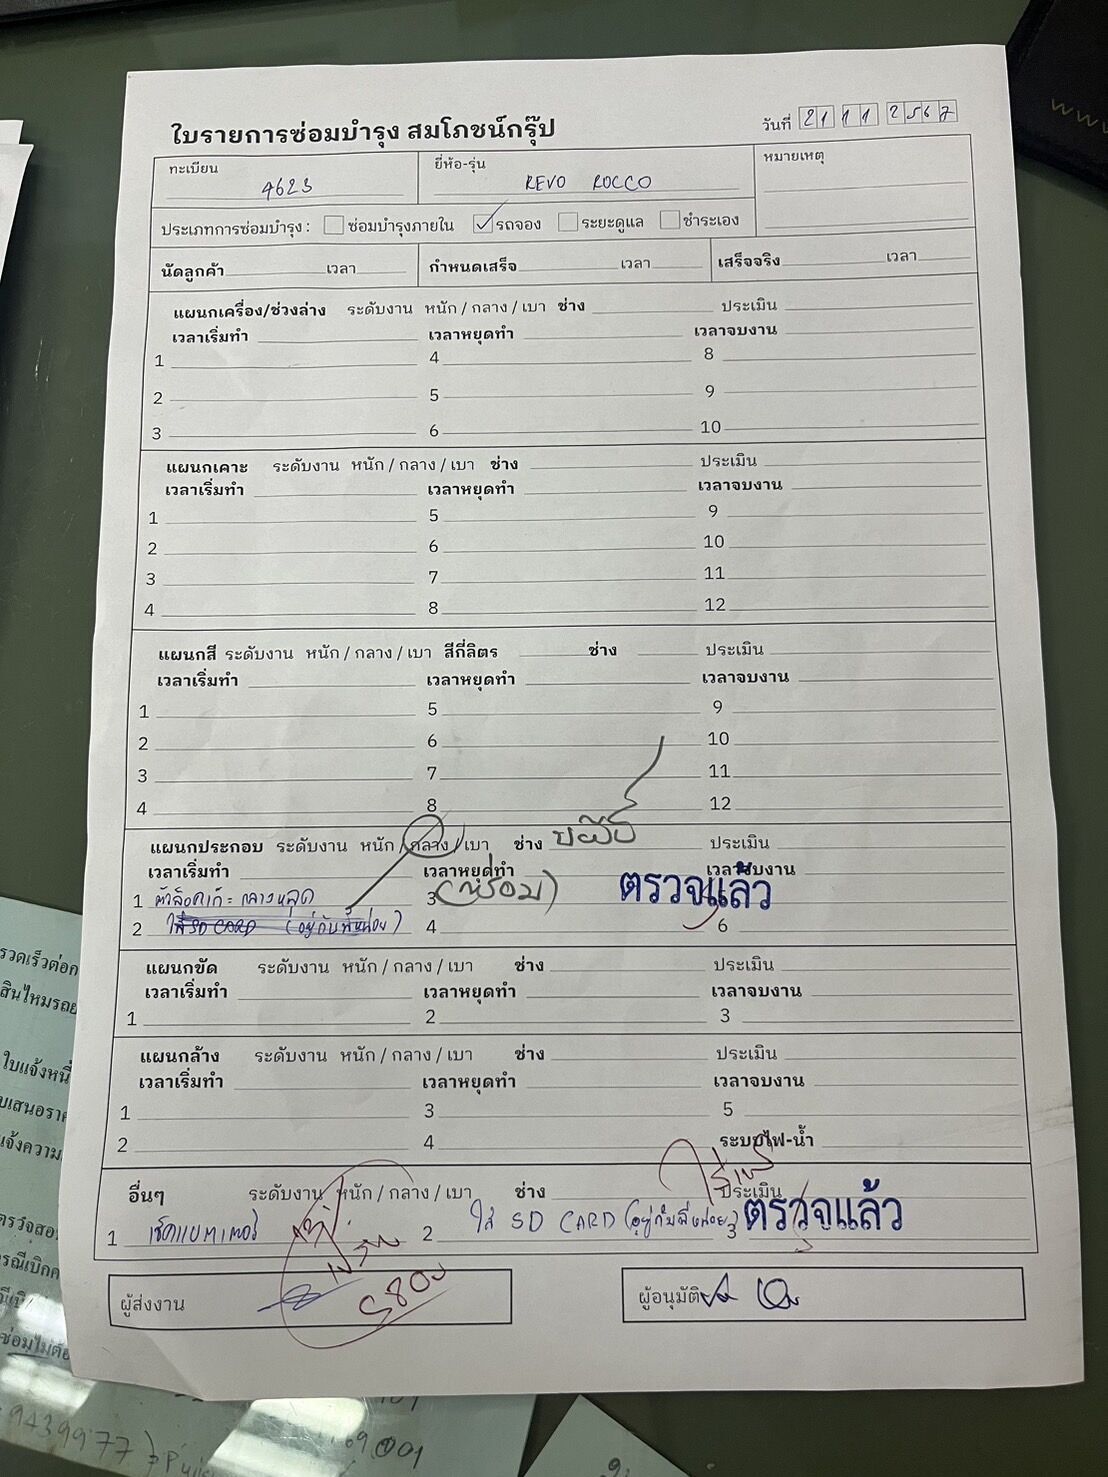 ใบรายการซ่อมบำรุง สมโภชน์กรุ๊ป
วันที่ 21 11 2567
ทะเบียน 4623
ยี่ห้อ-รุ่น REVO ROCCO
หมายเหตุ
ประเภทการซ่อมบำรุง : ซ่อมบำรุงภายใน ✓ รถจอง ระยะดูแล ชำระเอง
นัดลูกค้า เวลา กำหนดเสร็จ เวลา เสร็จจริง เวลา
แผนกเครื่อง/ช่วงล่าง ระดับงาน หนัก / กลาง / เบา ช่าง ประเมิน
เวลาเริ่มทำ เวลาหยุดทำ เวลาจบงาน
1 4 8
2 5 9
3 6 10
แผนกเคาะ ระดับงาน หนัก / กลาง / เบา ช่าง ประเมิน
เวลาเริ่มทำ เวลาหยุดทำ เวลาจบงาน
1 5 9
2 6 10
3 7 11
4 8 12
แผนกสี ระดับงาน หนัก / กลาง / เบา สีกี่ลิตร ช่าง ประเมิน
เวลาเริ่มทำ เวลาหยุดทำ เวลาจบงาน
1 5 9
2 6 10
3 7 11
4 8 12
แผนกประกอบ ระดับงาน หนัก / กลาง / เบา ช่าง ประเมิน
เวลาเริ่มทำ เวลาหยุดทำ เวลาจบงาน
1 3 (พร้อม) ตรวจแล้ว
2 ใส่ SD CARD (อยู่กับพี่หน่อย) 4 6
แผนกขัด ระดับงาน หนัก / กลาง / เบา ช่าง ประเมิน
เวลาเริ่มทำ เวลาหยุดทำ เวลาจบงาน
1 2 3
แผนกล้าง ระดับงาน หนัก / กลาง / เบา ช่าง ประเมิน
เวลาเริ่มทำ เวลาหยุดทำ เวลาจบงาน
1 3 5
2 4 ระบบไฟ-น้ำ
อื่นๆ ระดับงาน หนัก / กลาง / เบา ช่าง ประเมิน
1 เช็คแบตเตอรี่ 2 ใส่ SD CARD (อยู่กับพี่หน่อย) 3 ตรวจแล้ว
ผู้ส่งงาน
ผู้อนุมัติ
รวดเร็วต่อก
สินไหมรถย
ใบแจ้งหนี้
แจ้งความ
9439977